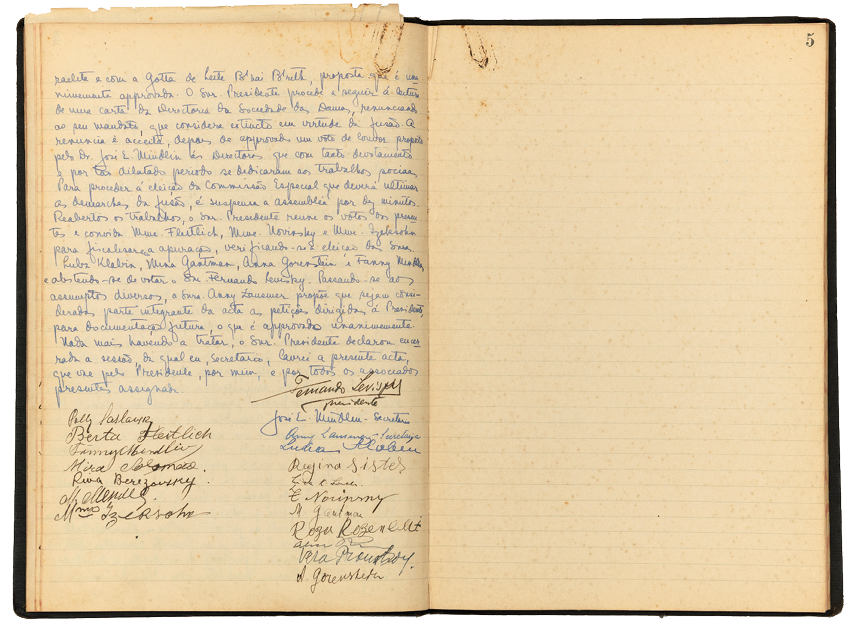 raelita e com a Gotta de Leite B'nai B'rith, proposta que é una-
nimemente approvada. O Snr. Presidente procede a seguir á leitura
de uma carta da Directoria da Sociedade das Damas, renunciando
ao seu mandato, que considera extincto em virtude da fusão. A
renuncia é acceita, depois de approvado um voto de louvor proposto
pelo Dr. José E. Mindlin ás Directoras que com tanto devotamento
e por tão dilatado periodo se dedicaram aos trabalhos sociaes.
Para proceder á eleição da Commissão Especial que deverá ultimar
as demarches da fusão, é suspensa a assembléa por dez minutos.
Reabertos os trabalhos, o Snr. Presidente reune os votos dos presen-
tes e convida Mme. Fleitlich, Mme. Novinsky e Mme. Izeksohn
para fiscalisar a apuração, verificando-se a eleição das Snras.
Luba Klabin, Mina Gantman, Anna Gorenstein e Fanny Mindlin,
abstendo-se de votar o Snr. Fernando Levisky. Passando-se aos
assumptos diversos, a Snra. Anny propõe que sejam consi-
deradas parte integrante da acta as petições dirigidas á Presidente,
para documentação futura, o que é approvado unanimemente.
Nada mais havendo a tratar, o Snr. Presidente declarou encer-
rada a sessão, da qual eu, Secretario, lavrei a presente acta,
que vae pelo Presidente, por mim, e por todos os associados
presentes assignada.
Fernando Levisky
presidente
José E. Mindlin - Secretario
Polly
Berta Fleitlich
Fanny Mindlin
Mira
Riva Berezovsky
M. Mendel
Mme Izeksohn
Luba Klabin
Regina Sister
E. Novinsky
M. Gantman
Roza Rozenblit
Vera
A. Gorenstein
5